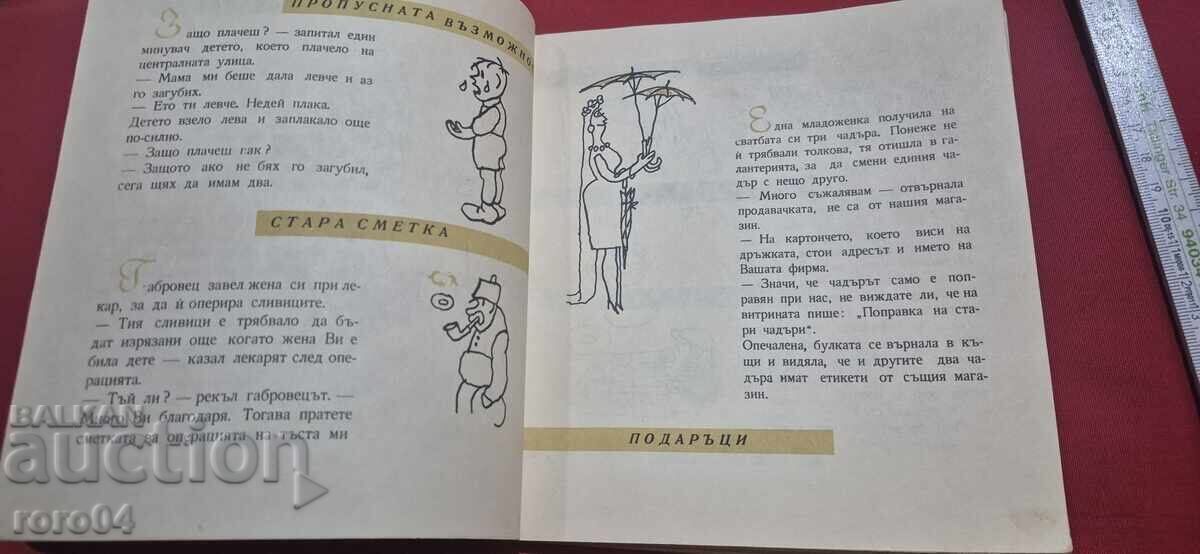 ПРОПУСНАТА ВЪЗМОЖНО
Защо плачеш? — запитал един
минувач детето, което плачело на
централната улица.
— Мама ми беше дала левче и аз
го загубих.
— Ето ти левче. Недей плака.
Детето взело лева и заплакало още
по-силно.
— Защо плачеш пак?
— Защото ако не бях го загубил,
сега щях да имам два.
СТАРА СМЕТКА
Габровец завел жена си при ле-
кар, за да ѝ оперира сливиците.
— Тия сливици е трябвало да бъ-
дат изрязани още когато жена Ви е
била дете — казал лекарят след опе-
рацията.
— Тъй ли? — рекъл габровецът. —
Много Ви благодаря. Тогава пратете
сметката за операцията на тъста ми
Една младоженка получила на
сватбата си три чадъра. Понеже не
ѝ трябвали толкова, тя отишла в га-
лантерията, за да смени единия ча-
дър с нещо друго.
— Много съжалявам — отвърнала
продавачката, не са от нашия мага-
зин.
— На картончето, което виси на
дръжката, стои адресът и името на
Вашата фирма.
— Значи, че чадърът само е поп-
равян при нас, не виждате ли, че на
витрината пише: „Поправка на ста-
ри чадъри“.
Опечалена, булката се върнала в къ-
щи и видяла, че и другите два ча-
дъра имат етикети от същия мага-
зин.
ПОДАРЪЦИ
BALKAN
auction
roro04